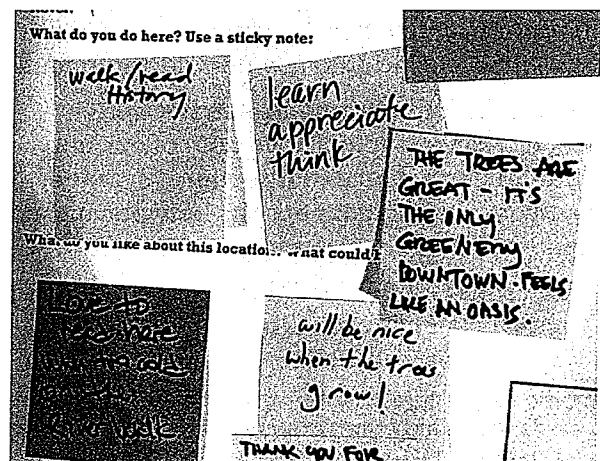 What do you do here? Use a sticky note:
walk/read
History
learn
appreciate
think
THE TREES ARE
GREAT - IT'S
THE ONLY
GREENERY
DOWNTOWN. FEELS
LIKE AN OASIS.
What do you like about this location? What could
Love to
read here
when it's cold
on the
Riverwalk
will be nice
when the trees
grow!
THANK YOU FOR